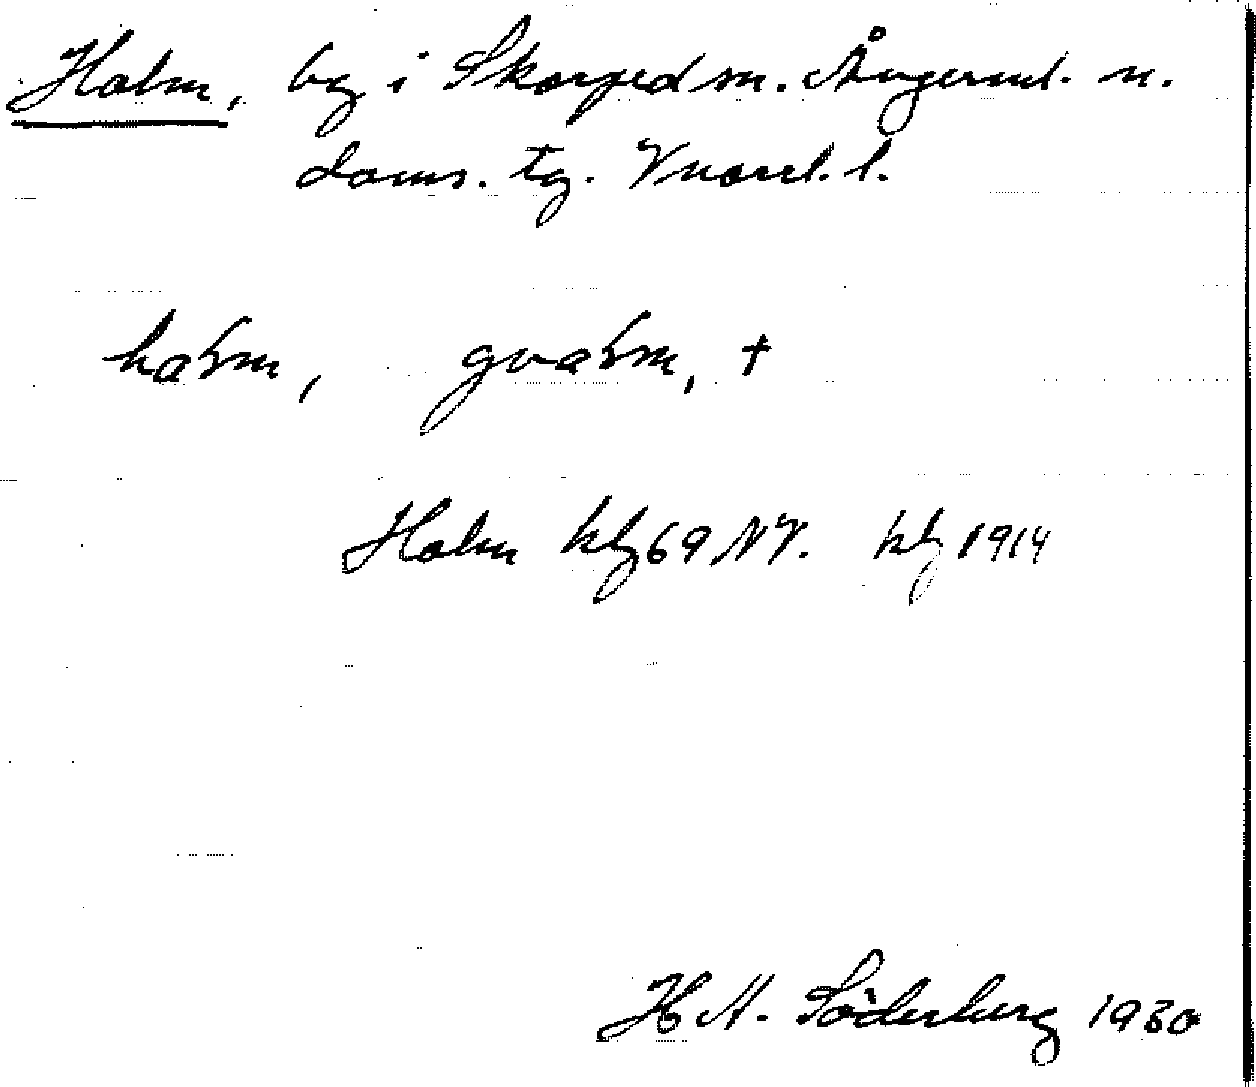 Holm, by i Skorped sn. Ångerml. n.
doms. tg. Vnorrl. l.
hołm, gvałm, †
Holm kbg 69 NV. kbg 1914
H A. Söderberg 1930